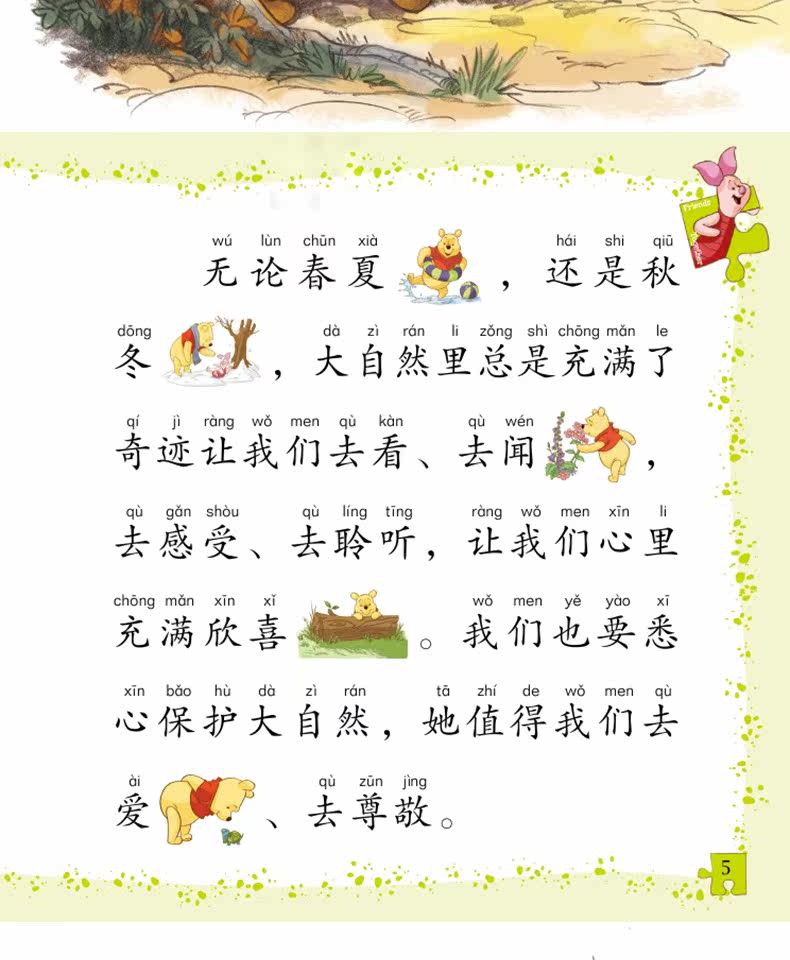 wú lùn chūn xià hái shi qiū
无论春夏，还是秋
dōng dà zì rán li zǒng shì chōng mǎn le
冬，大自然里总是充满了
qí jì ràng wǒ men qù kàn qù wén
奇迹让我们去看、去闻，
qù gǎn shòu qù líng tīng ràng wǒ men xīn li
去感受、去聆听，让我们心里
chōng mǎn xīn xǐ wǒ men yě yào xī
充满欣喜。我们也要悉
xīn bǎo hù dà zì rán tā zhí de wǒ men qù
心保护大自然，她值得我们去
ài qù zūn jìng
爱、去尊敬。
Friends
5